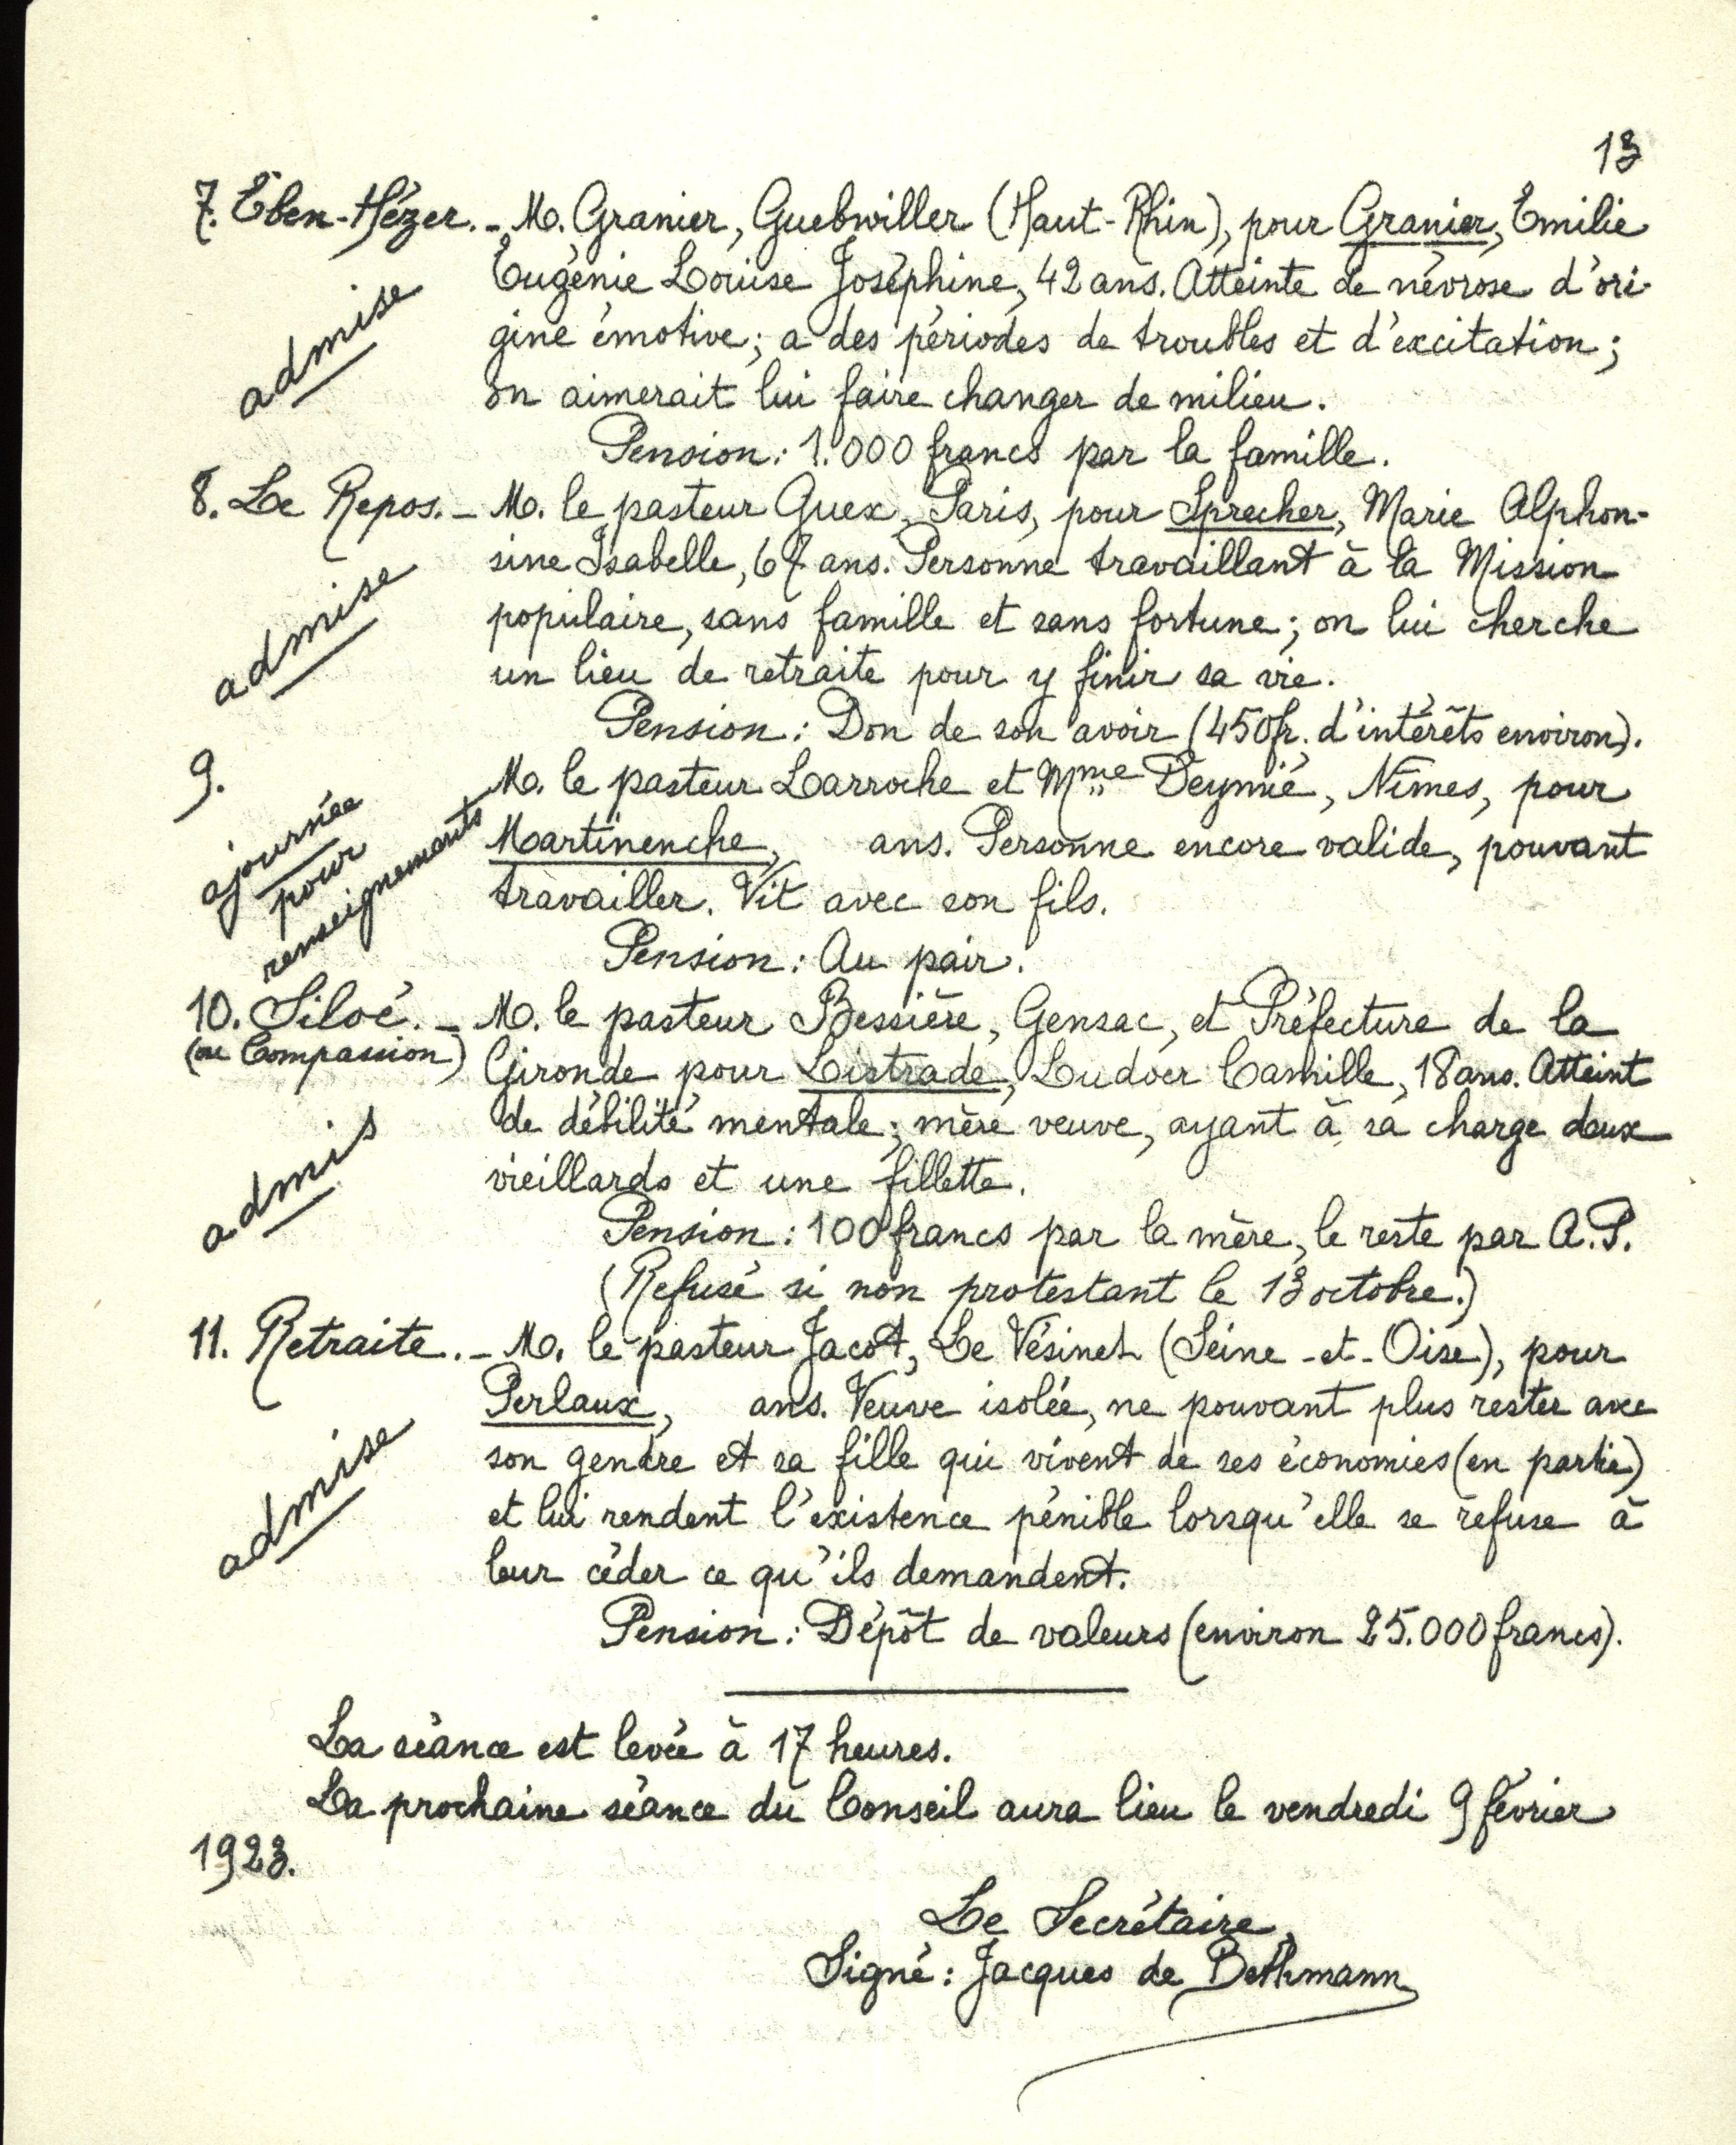 13
7. Eben-Hézer. - M. Granier, Guebwiller (Haut-Rhin), pour Granier, Emilie
Eugénie Louise Joséphine, 42 ans. Atteinte de névrose d'ori-
admise
gine émotive; a des périodes de troubles et d'excitation;
on aimerait lui faire changer de milieu.
Pension: 1.000 francs par la famille.
8. Le Repos. - M. le pasteur Guex, Paris, pour Sprecher, Marie Alphon-
sine Isabelle, 67 ans. Personne travaillant à la Mission
admise
populaire, sans famille et sans fortune; on lui cherche
un lieu de retraite pour y finir sa vie.
Pension: Don de son avoir (450 fr. d'intérêts environ).
9. M. le pasteur Larroche et Mme Deymié, Nîmes, pour
ajournée
pour
renseignements
Martinenche, ans. Personne encore valide, pouvant
travailler. Vit avec son fils.
Pension: Au pair.
10. Siloé. - M. le pasteur Bessière, Gensac, et Préfecture de la
(ou Compassion) Gironde pour Listrade, Camille, 18 ans. Atteint
de débilité mentale; mère veuve, ayant à sa charge deux
admis
vieillards et une fillette.
Pension: 100 francs par la mère, le reste par A.P.
(Refusé si non protestant le 13 octobre.)
11. Retraite. - M. le pasteur Jacot, Le Vésinet (Seine-et-Oise), pour
Perlaux, ans. Veuve isolée, ne pouvant plus rester avec
admise
son gendre et sa fille qui vivent de ses économies (en partie)
et lui rendent l'existence pénible lorsqu'elle se refuse à
leur céder ce qu'ils demandent.
Pension: Dépôt de valeurs (environ 25.000 francs).
La séance est levée à 17 heures.
La prochaine séance du Conseil aura lieu le vendredi 9 février
1923.
Le Secrétaire,
Signé: Jacques de Bethmann